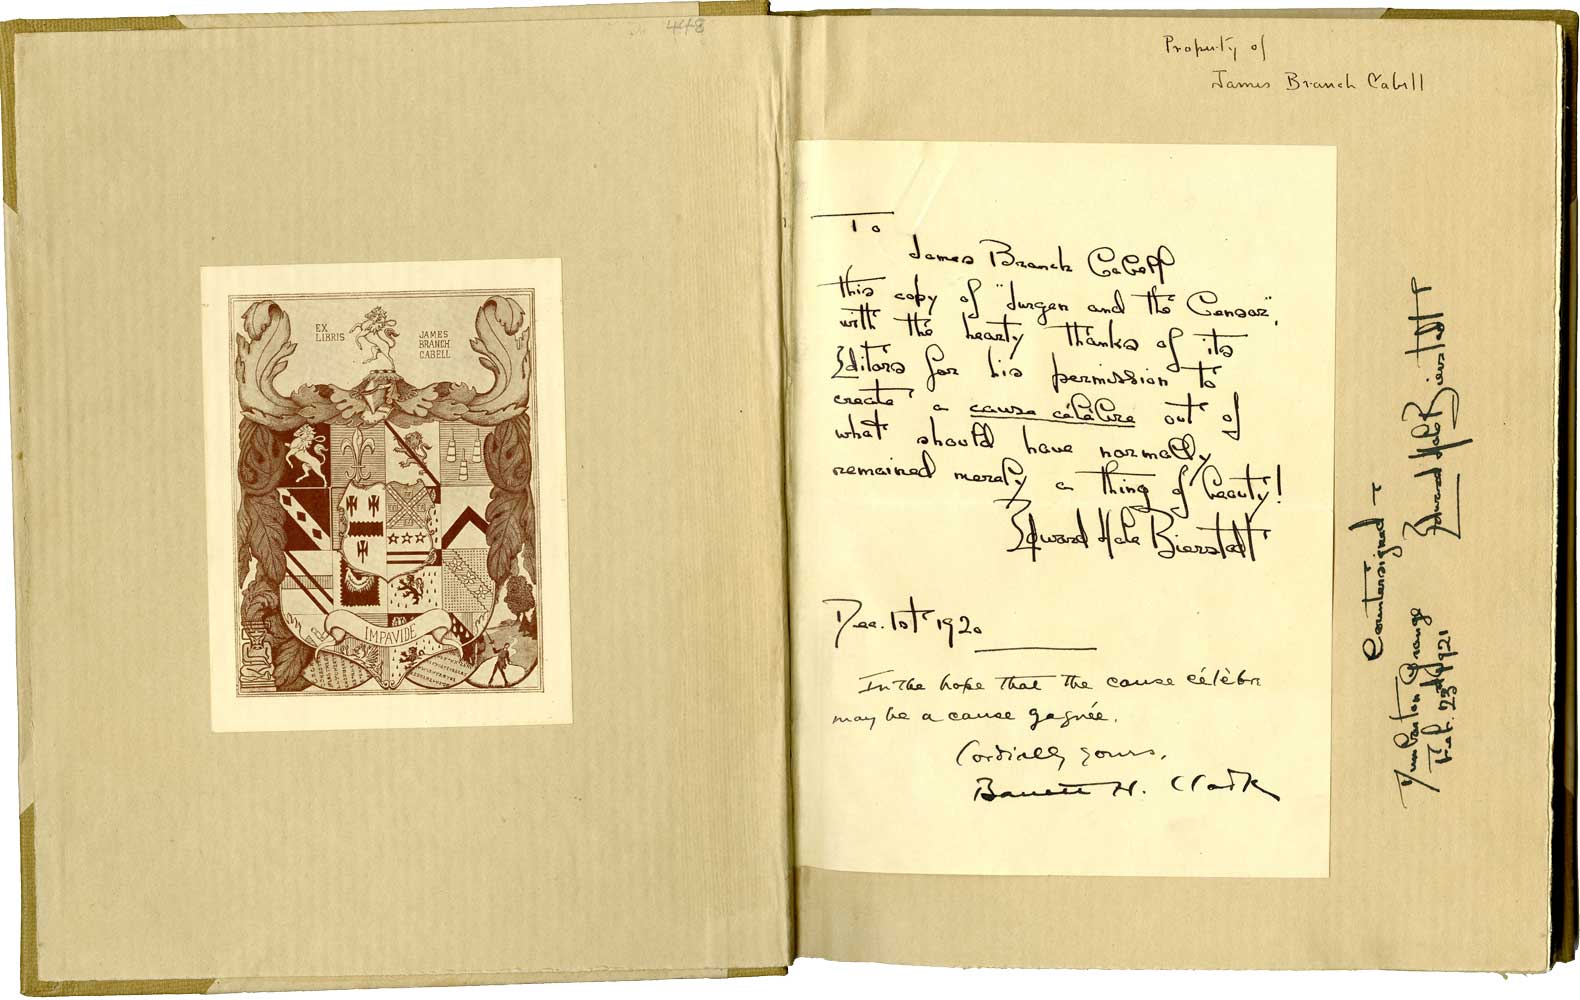 448
EX
LIBRIS
JAMES
BRANCH
CABELL
IMPAVIDE
Property of
James Branch Cabell
To
James Branch Cabell
this copy of "Jurgen and the Censor",
with the hearty thanks of its
Editors for his permission to
create a cause célèbre out of
what should have normally
remained merely a thing of beauty!
Edward Hale Bierstadt
Dec. 10th 1920
In the hope that the cause célèbre
may be a cause gagnée.
Cordially yours,
Barrett H. Clark
Countersigned -
Edward Hale Bierstadt
Dumbarton Grange
Feb. 23rd 1921